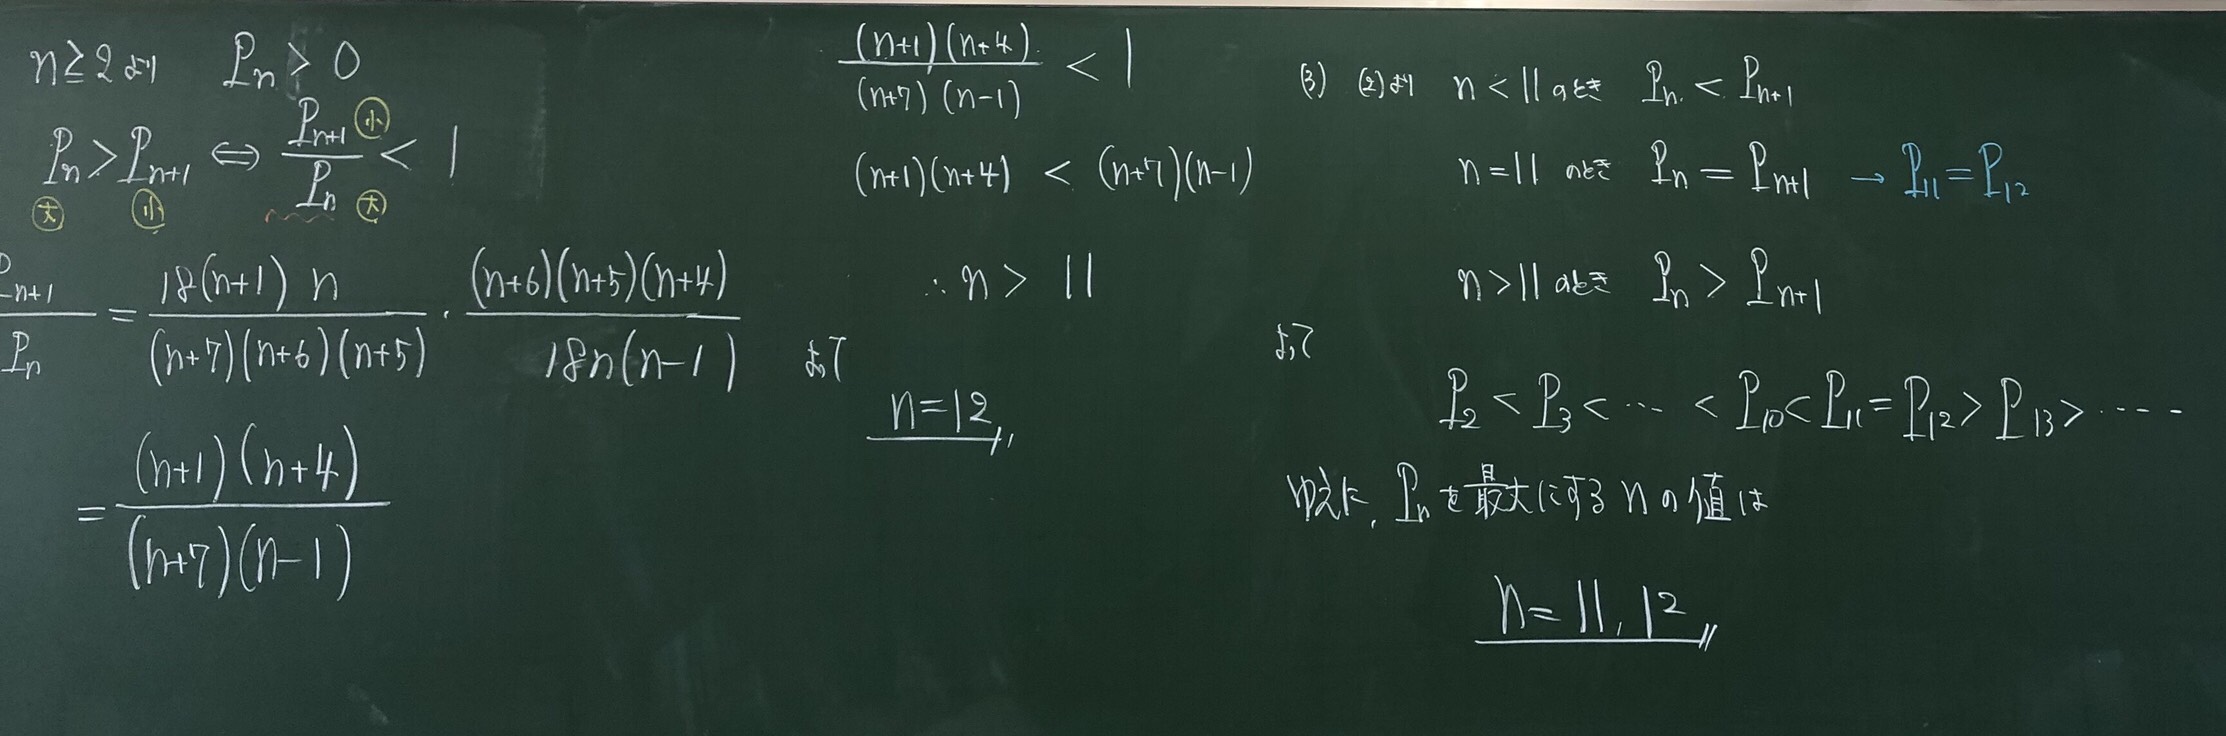 n≧2より Pn > 0
Pn > Pn+1 ⇔ Pn+1/Pn < 1
大 小 小 大
Pn+1/Pn = 18(n+1)n/(n+7)(n+6)(n+5) ・ (n+6)(n+5)(n+4)/18n(n-1)
= (n+1)(n+4)/(n+7)(n-1)
(n+1)(n+4)/(n+7)(n-1) < 1
(n+1)(n+4) < (n+7)(n-1)
∴ n > 11
よって
n=12
(3) (2)より n<11のとき Pn < Pn+1
n=11のとき Pn = Pn+1 → P11=P12
n>11のとき Pn > Pn+1
よって
P2 < P3 < … < P10 < P11 = P12 > P13 > ‥‥
ゆえに, Pnを最大にするnの値は
n=11, 12